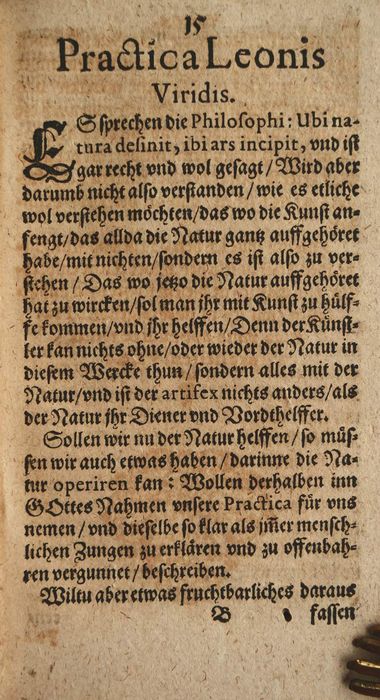 15
Practica Leonis
Viridis.
ES sprechen die Philosophi: Ubi na-
tura desinit, ibi ars incipit, vnd ist
gar recht vnd wol gesagt/Wird aber
darumb nicht also verstanden/wie es etliche
wol verstehen möchten/das wo die Kunst an-
fengt/das allda die Natur gantz auffgehöret
habe/mit nichten/sondern es ist also zu ver-
stehen/Das wo jetzo die Natur auffgehöret
hat zu wircken/sol man jhr mit Kunst zu hülf-
fe kommen/vnd jhr helffen/Denn der Künst-
ler kan nichts ohne/oder wieder der Natur in
diesem Wercke thun/sondern alles mit der
Natur/vnd ist der artifex nichts anders/als
der Natur jhr Diener vnd Vordthelffer.
Sollen wir nu der Natur helffen/so müs-
sen wir auch etwas haben/darinne die Na-
tur operiren kan: Wollen derhalben inn
GOttes Nahmen vnsere Practica für vns
nemen/vnd dieselbe so klar als jm̃er mensch-
lichen Zungen zu erklären vnd zu offenbah-
ren vergunnet/beschreiben.
Wiltu aber etwas fruchtbarliches daraus
B fassen